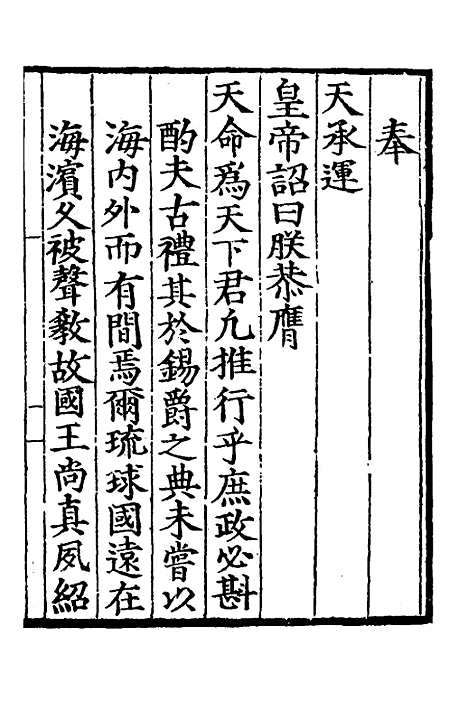 奉
天承運
皇帝詔曰朕恭膺
天命爲天下君凢推行乎庶政必斟
酌夫古禮其於錫爵之典未嘗以
海内外而有間焉爾琉球國遠在
海濱乆被聲敎故國王尚真夙紹